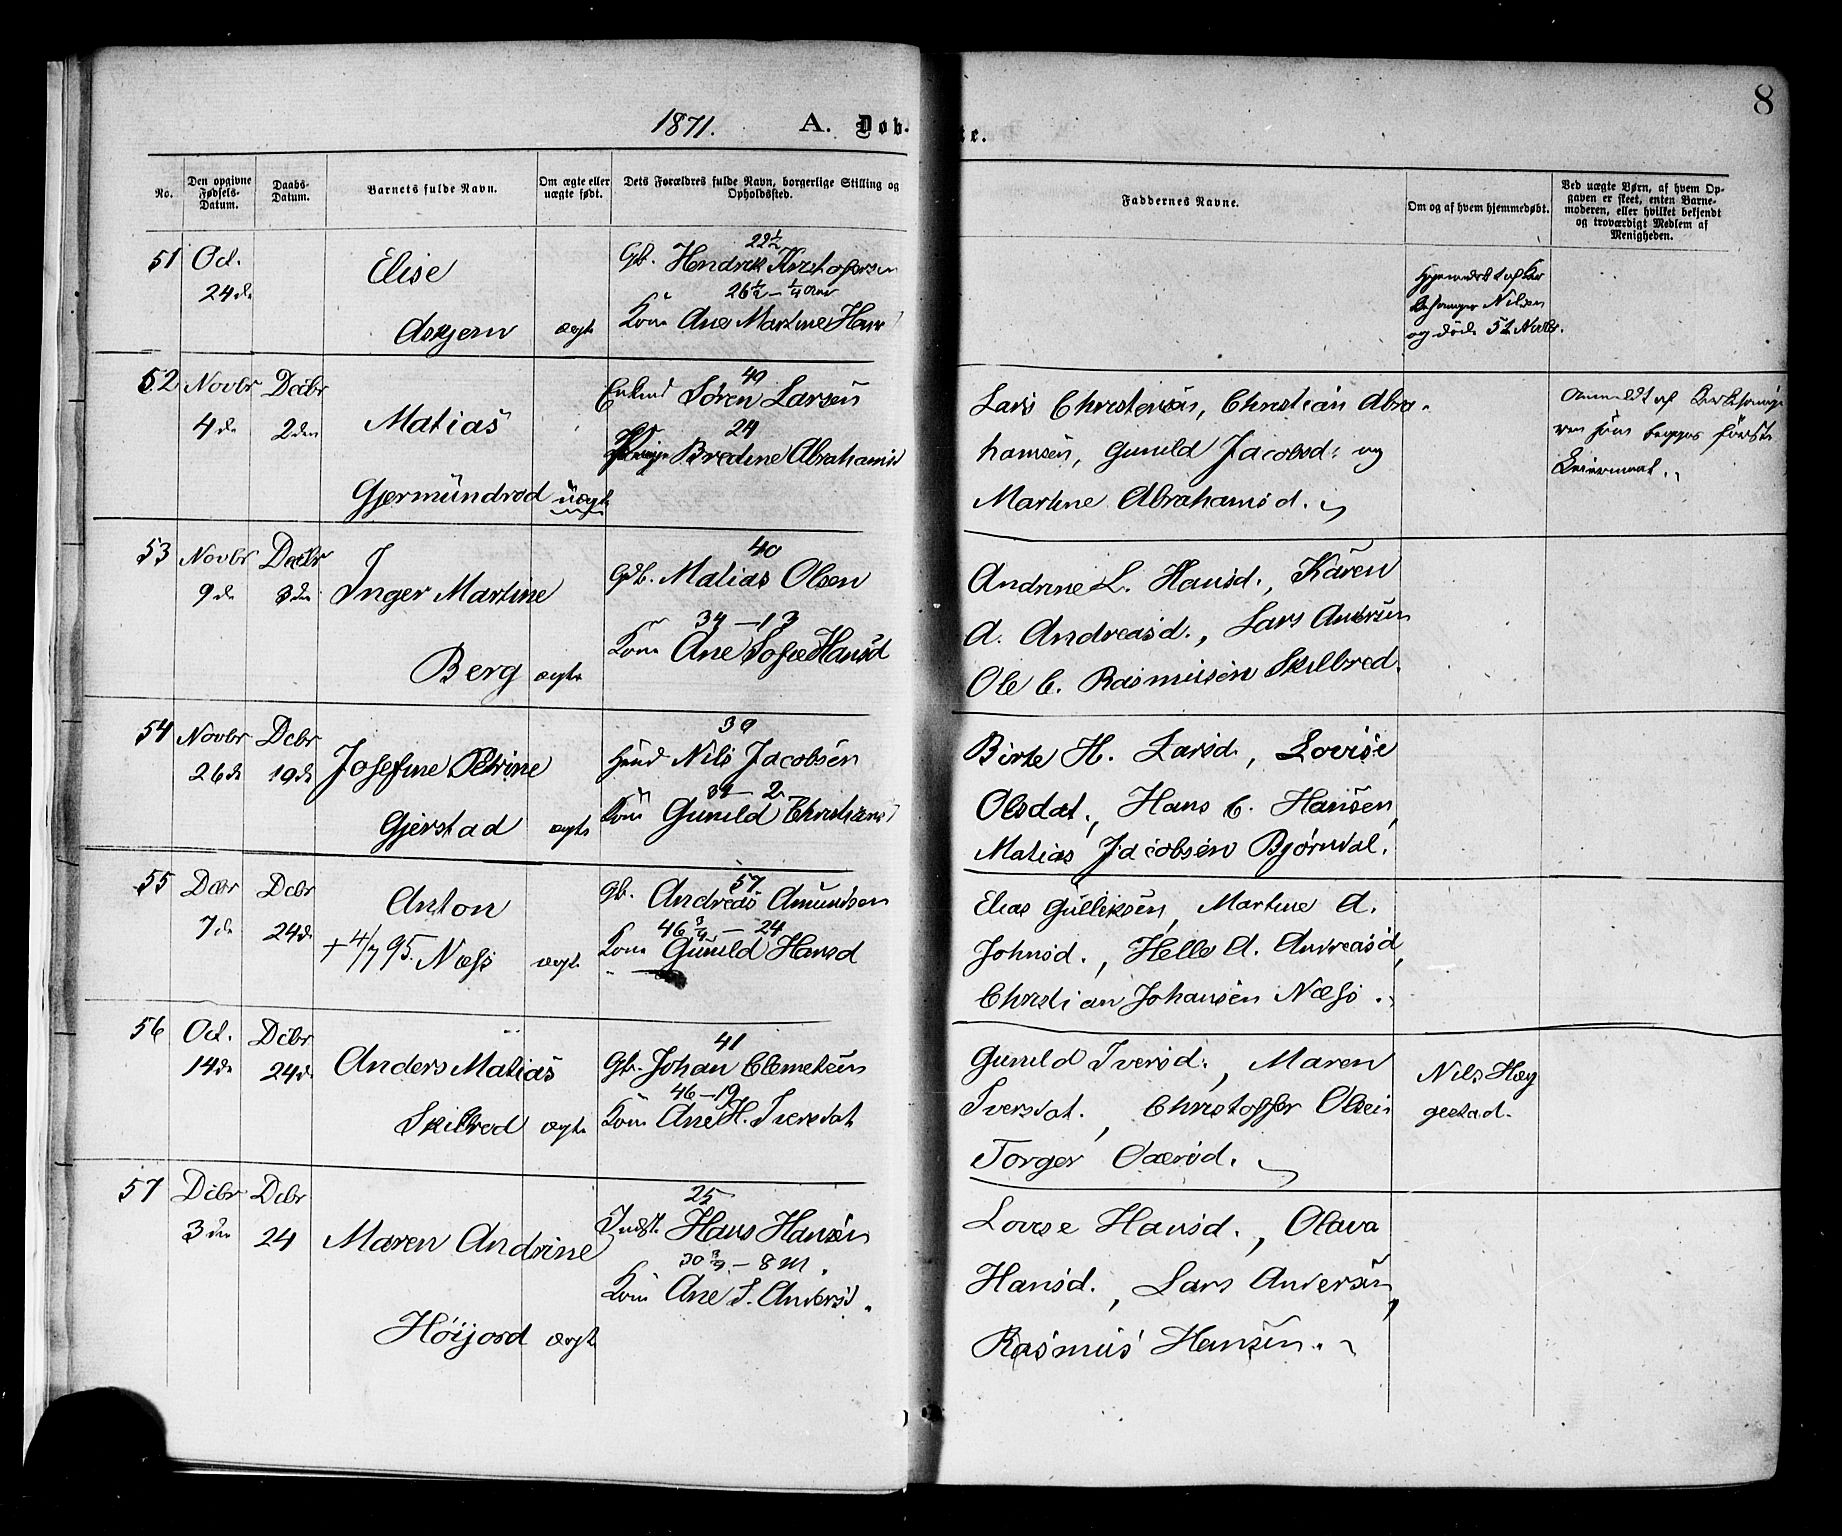 8
1871. A. Døb-
te.
No.
Den opgivne Fødsels-Datum.
Daabs-Datum.
Barnets fulde Navn.
Om ægte eller uægte født.
Dets Forældres fulde Navn, borgerlige Stilling og Opholdssted.
Faddernes Navne.
Om og af hvem hjemmedøbt.
Ved uægte Børn, af hvem Op-
gaven er skeet, enten Barne-
moderen, eller hvilket bekjendt
og troværdigt Medlem af
Menigheden.
51 Oct. 24de
Elise
Askjem ægte
22½
Gb. Hendrik Kristofersen
26½ – ¼ Aar
Kone Ane Martine Hans
Nilsen
og døde 52 Novbr.
52 Novbr 4de Decbr 2den
Matias
Gjermundrød uægte
49
Enkmd Søren Larsen
24
Pige Bredine Abrahamsd
Lars Christensen, Christian Abra-
hamsen, Gunild Jacobsd: og
Martine Abrahamsd.
Anmeldt af Kirkesange
ren som begges første
Leiermaal.
53 Novbr 9de Decbr 3die
Inger Martine
Berg ægte
40
Gdb. Matias Olsen
34 – 13
Kone Ane Sofie Hansd
Andrine L. Hansd., Karen
A. Andreasd., Lars Andersen
Ole C. Rasmusen Skilbred.
54 Novbr 26de Dcbr 19de
Josefine Petrine
Gjerstad ægte
39
Husmd Nils Jacobsen
39 – 2
Kone Gunild Christians
Birte H. Larsd., Lovise
Olsdat., Hans C. Hansen,
Matias Jacobsen Bjørndal.
55 Decbr 7de Dcbr 24de
Anton
+ 4/7 95. Næss ægte
57
gb. Andreas Amundsen
46¾ – 24
Kone Gunild Hansd
Elias Gulliksen, Martine A.
Johnsd., Helle A. Andreasd,
Christian Johansen Næss.
56 Oct. 14de Dcbr 24de
Anders Matias
Skilbred ægte
41
Gb. Johan Clemetsen
46 – 19
Kone Ane H. Iversdat
Gunild Iversd., Maren
Iversdat., Christoffer Olsen
Torger
Nils Hæg
gestad.
57 Dcbr 3die Dcbr 24
Maren Andrine
Høijord ægte
25
Indst. Hans Hansen
30¾ – 8 M.
Kone Ane S. Andersd.
Lovise Hansd., Olava
Hansd., Lars Andersen,
Rasmus Hansen.